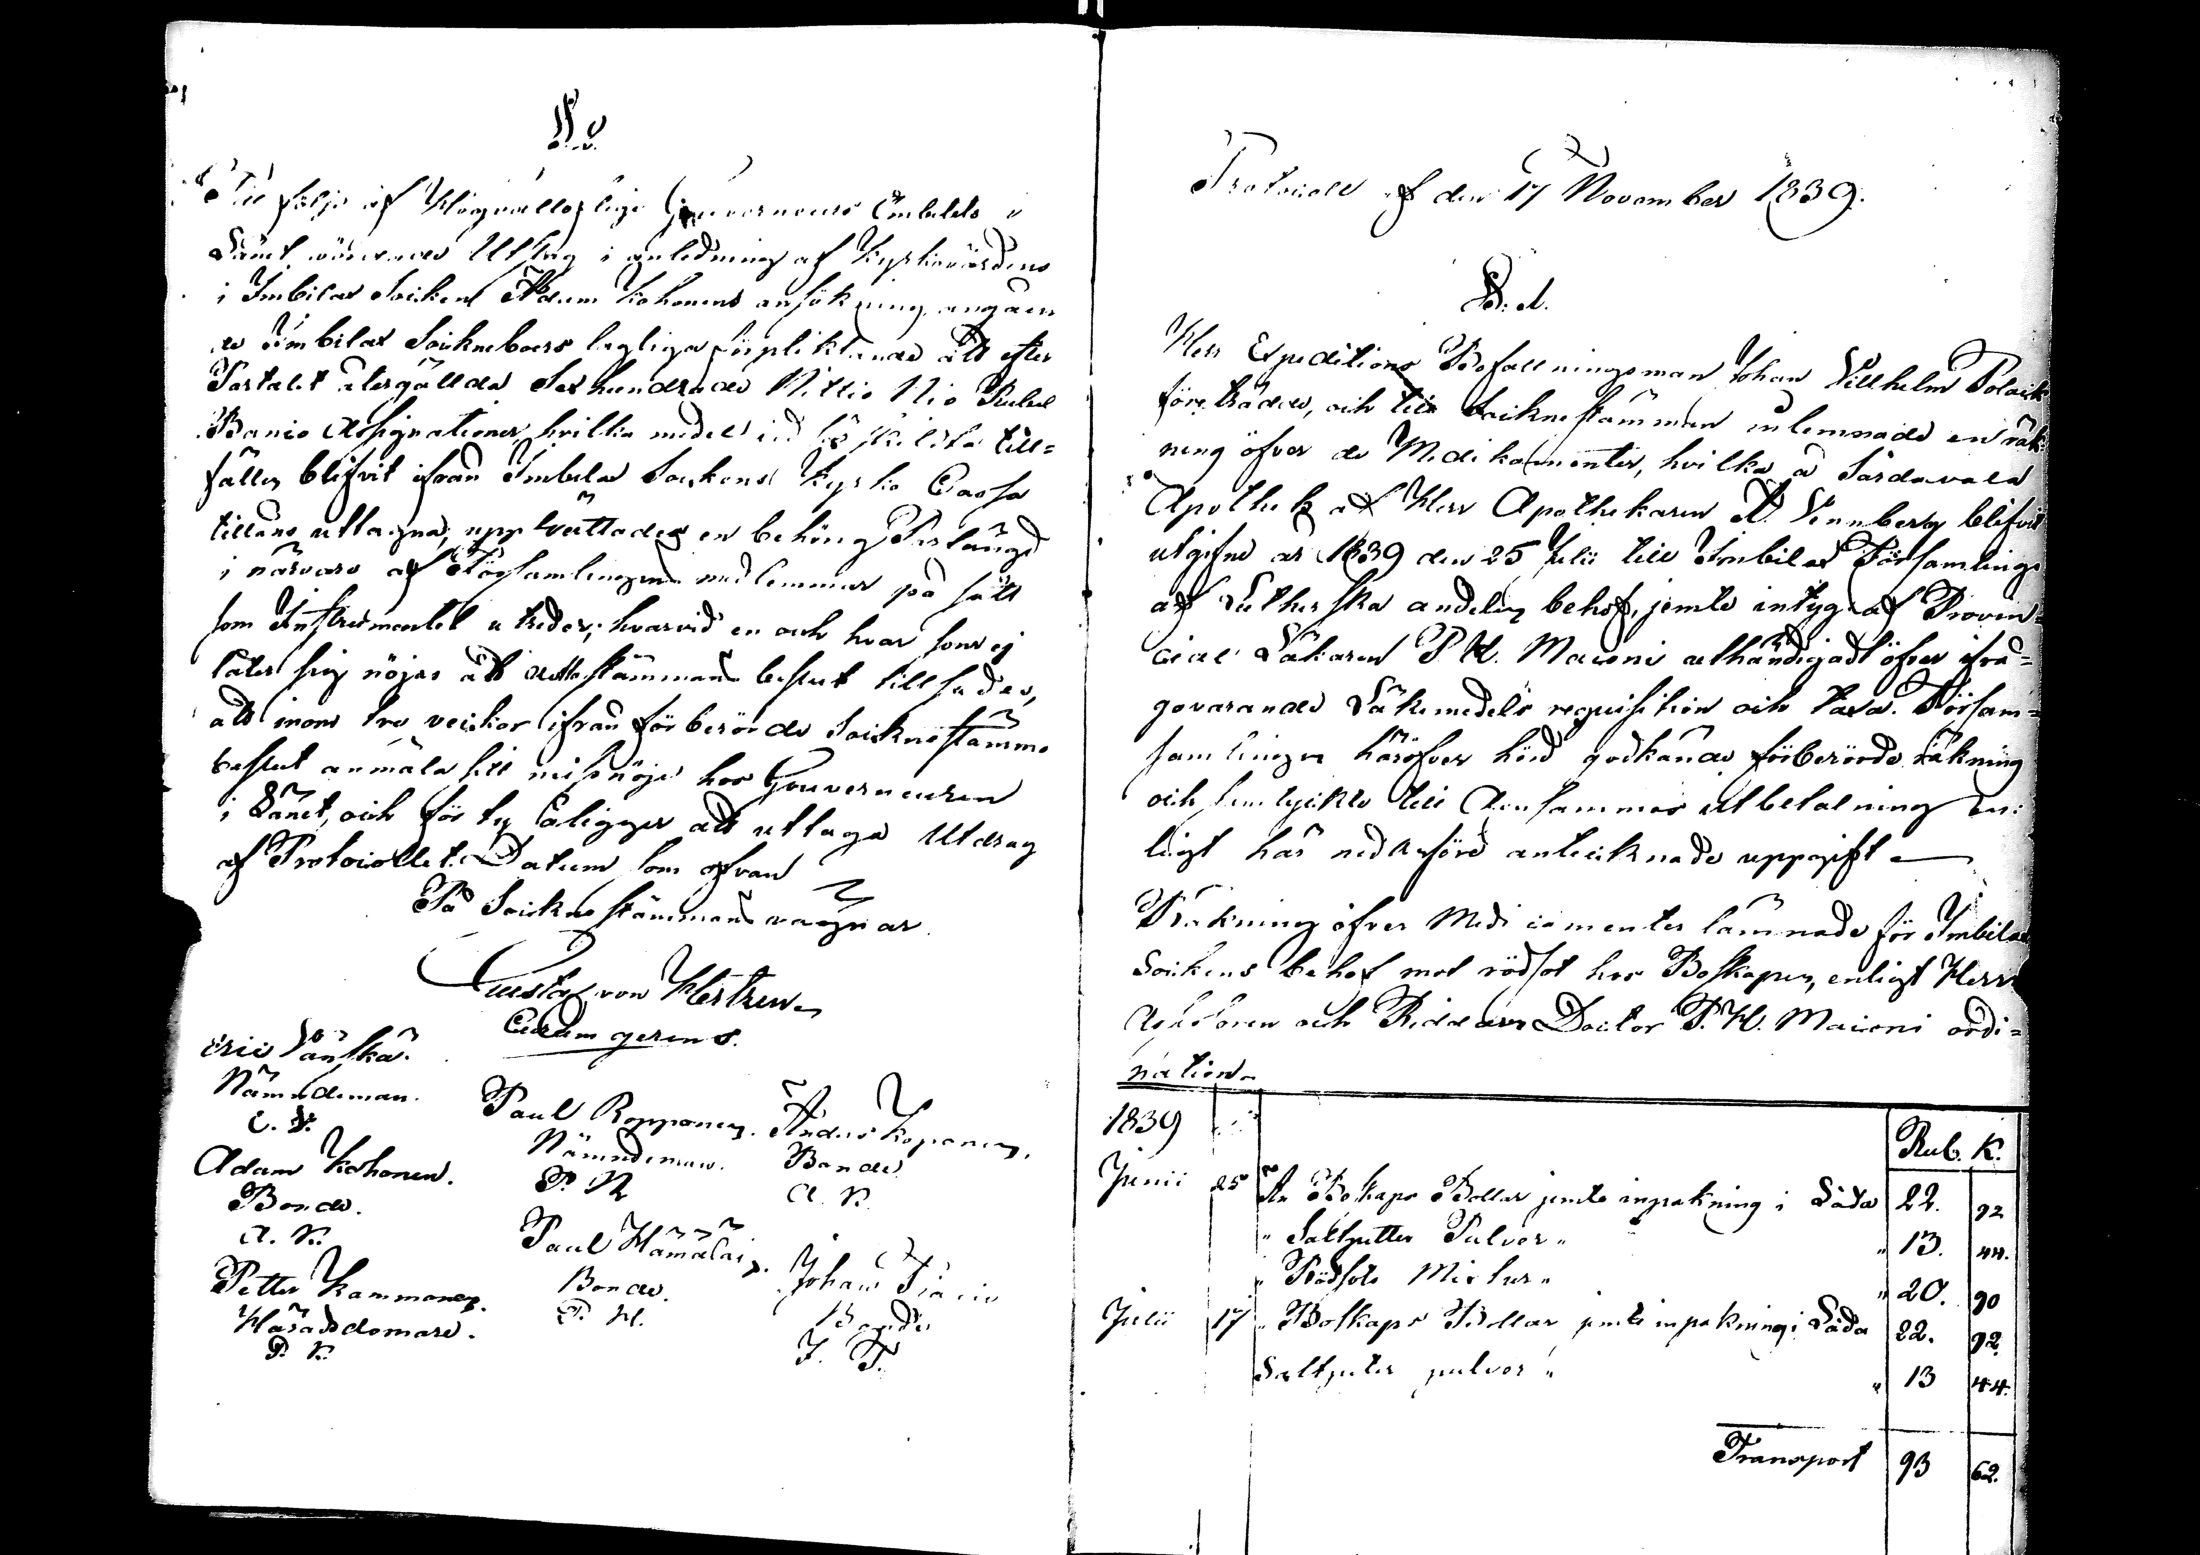 §. 2.
Till följe af Högvällofliga Gouverneurs Embetets i
Länet wördande Utslag i anledning af Kyrkovärdens
i Imbilax Socken Adam Kohonens ansökning, angåen
de Imbilax Sockneboers lagliga förpliktande att efter
Partalet återgällda Sexhundrade Nittio Nio Rubel
Banco Assignationer, hvilka medel vid särskilda till=
fällen blifvit ifrån Imbilax Sockens Kyrko Cassa
tillåns uttagna, upprättades en behörig Partlängd
i närvaro af Församlingens medlemmar på sätt
som Instrumentet utreder; hvarvid en och hvar som ej
låter sig nöjas åt detta stämmans beslut tillsades,
att inom tre veckor ifrån förberörde Sockne stämmo
beslut anmäla sitt missnöje hos Gouverneuren
i Länet, och för ty åligger att uttaga Utdrag
af Protocollet. Datum som ofvan
På Sockne stämmans vägnar.
Gustaf von Hertzen
Curam gerens.
Eric Länskä.
Nämndeman.
Paul Ropponen. Anders Koponen.
Nämndeman. Bonde
P. R. A. K.
Adam Kohonen.
Bonde.
A. K.
Paul Hämäläin.
Bonde.
P. H.
Johan
Bonde
J. T.
Petter Kammonen.
Häradsdomare.
P. K.
Protocoll af den 17 November 1839.
§. 1.
Herr Expeditions Befallningsman Johan Vilhelm Polack
företrädde, och till Socknestämman inlemnade en räk=
ning öfver de Medikamenter, hvilka å Sordavala
Apothek af Herr Apothekaren A. Vennberg blifvit
utgifne år 1839 den 25 Julii till Imbilax Församlings
af Lutherska andelens behof, jemte intyg af Provin=
cial Läkaren P. H. Maconi uthändigadt öfver ifrå=
govarande Läkemedels requisition och taxa. Försam=
samlingen häröfver hörd godkände förberörde räkning
och samtyckte till densammas utbetalning en=
ligt här nedanförd antecknade uppgift
Räkning öfver Medicamenter lämnade för Imbilax
Sockens behof mot rödsot hos Boskapen, enligt Herr
Assessoren och Riddaren Doctor P. H. Maconi ordi=
nation.
1839 Rub. K.
Junii 25 Boskaps Bollar jemte inpakning i Låda 22. 92
" Saltpetter Pulver " " 13. 44.
" Rödsots Mixtur " " 20. 90
Julii 17 " Boskaps Bollar jemte inpakning i Låda 22. 92
Saltpeter pulver " " 13 44.
Transport 93 62.